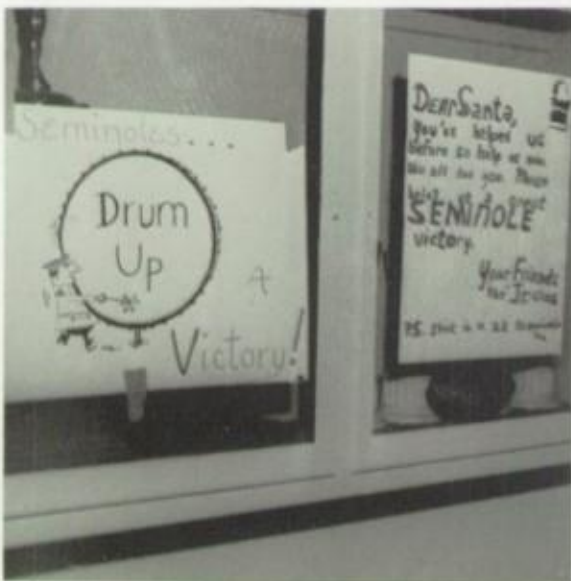 Seminoles...
Drum
Up
A
Victory!
Dear Santa,
You've helped us
before so help us
We all you. Please
great
SEMINOLE
victory.
Your Friends
the
P.S.